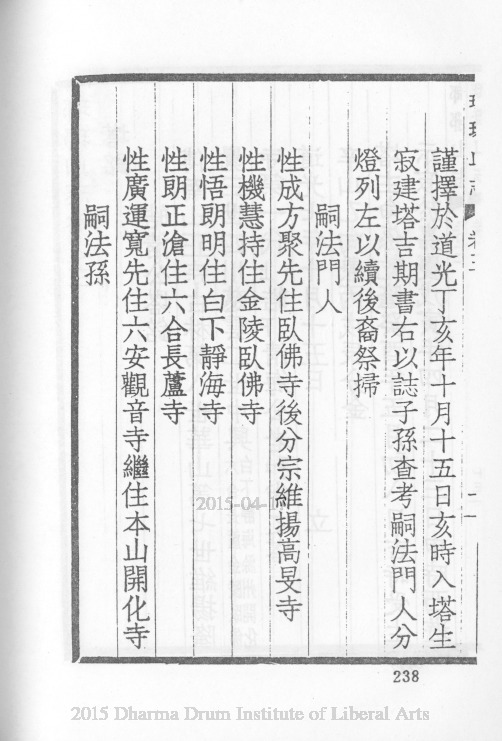 謹擇於道光丁亥年十月十五日亥時入塔生
寂建塔吉期書右以誌子孫查考嗣法門人分
燈列左以續後裔祭掃
嗣法門人
性成方聚先住臥佛寺後分宗維揚高旻寺
性機慧持住金陵臥佛寺
性悟朗明住白下靜海寺
性朗正滄住六合長蘆寺
性廣運寬先住六安觀音寺繼住本山開化寺
嗣法孫
238
2015-04-1
2015 Dharma Drum Institute of Liberal Arts